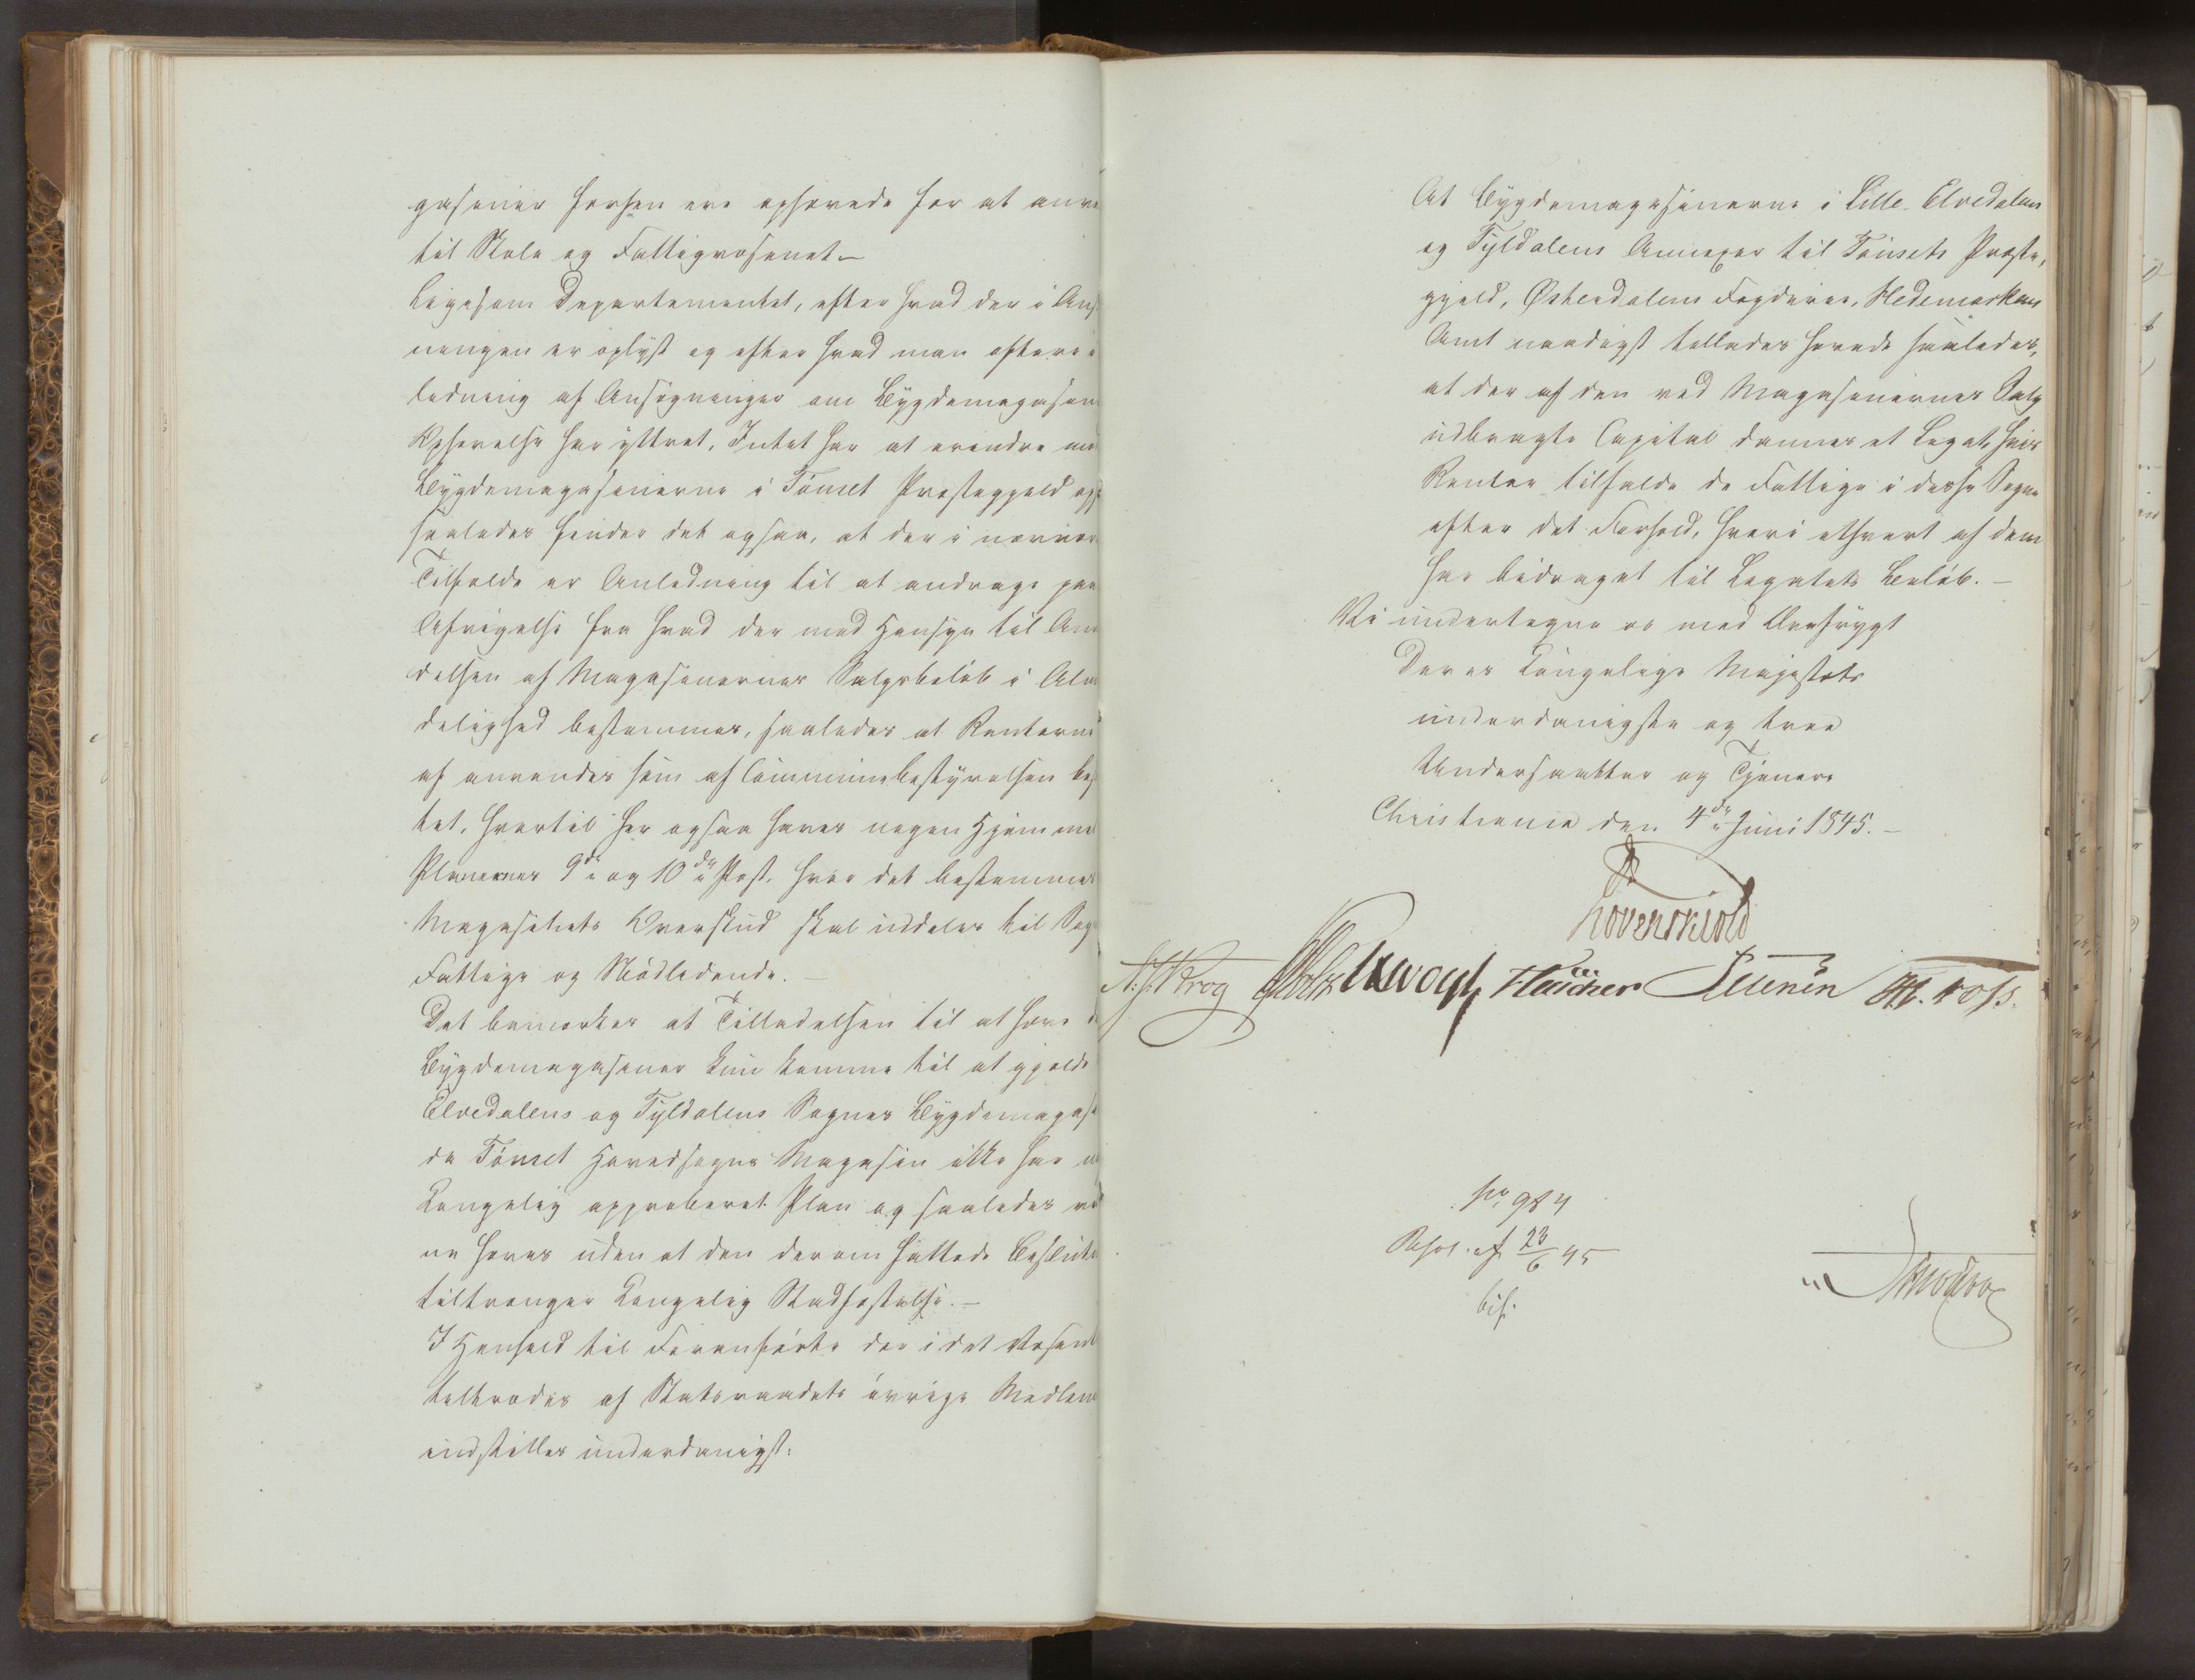 gasiner forhen ere ophævede for at anve
til Skole og Fattigvæsenet. –
Ligesom Departementet, efter hvad der i Ans
ningen er oplyst og efter hvad man oftere i
ledning af Ansøgninger om Bygdemagasin
Ophævelse har yttret, Intet har at erindre mod
Bygdemagasinerne i Tønset Præstegjeld op
saaledes finder det ogsaa, at der i nærvær
Tilfælde er Anledning til at andrage paa
Afvigelse fra hvad der med Hensyn til Anv
delsen af Magasinernes Salgsbeløb i Alm
delighed bestemmes, saaledes at Renterne
af anvendes som af Communebestyrelsen bes
tet, hvortil her ogsaa haves nogen Hjemmel
Planernes 9de og 10de Post, hvor det bestemmes
Magasinets Overskud skal uddeles til Sog
Fattige og Nødlidende. –
Det bemærkes at Tilladelsen til at hæve
Bygdemagasiner kun komme til at gjelde
Elvedalens og Tyldalens Sognes Bygdemagas
da Tønset Hovedsogns Magasin ikke har
Kongelig approberet Plan og saaledes vil
ne hæves uden at den derom fattede Beslutn
tiltrænger Kongelig Stadfæstelse. –
I Henhold til Foranførte der i det Væsent
tiltrædes af Statsraadets øvrige Medlem
indstilles underdanigst:
At Bygdemagasinerne i Lille Elvedalens
og Tyldalens Annexer til Tønsets Præste-
gjeld, Østerdalens Fogderie, Hedemarkens
Amt naadigst tillades hævede saaledes,
at der af den ved Magasinernes Salg
udbragte Capital dannes et Legat, hvis
Renter tilfalde de Fattige i disse Sogne
efter det Forhold, hvori ethvert af dem
har bidraget til Legatets Beløb. –
Vi undertegne os med Ærefrygt
Deres Kongelige Majestæts
underdanigste og troe
Undersaatter og Tjenere
Christiania den 4de Juni 1845. –
Løvenskiold
N. J. Krog Holst J H Vogt Fleischer Petersen H. Foss.
No. 984
Resol. af 23/6 45
bif.